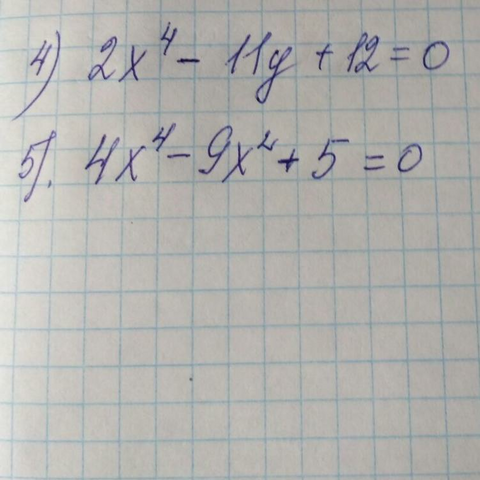 4) 2x⁴ - 11y + 12 = 0
5). 4x⁴ - 9x² + 5 = 0